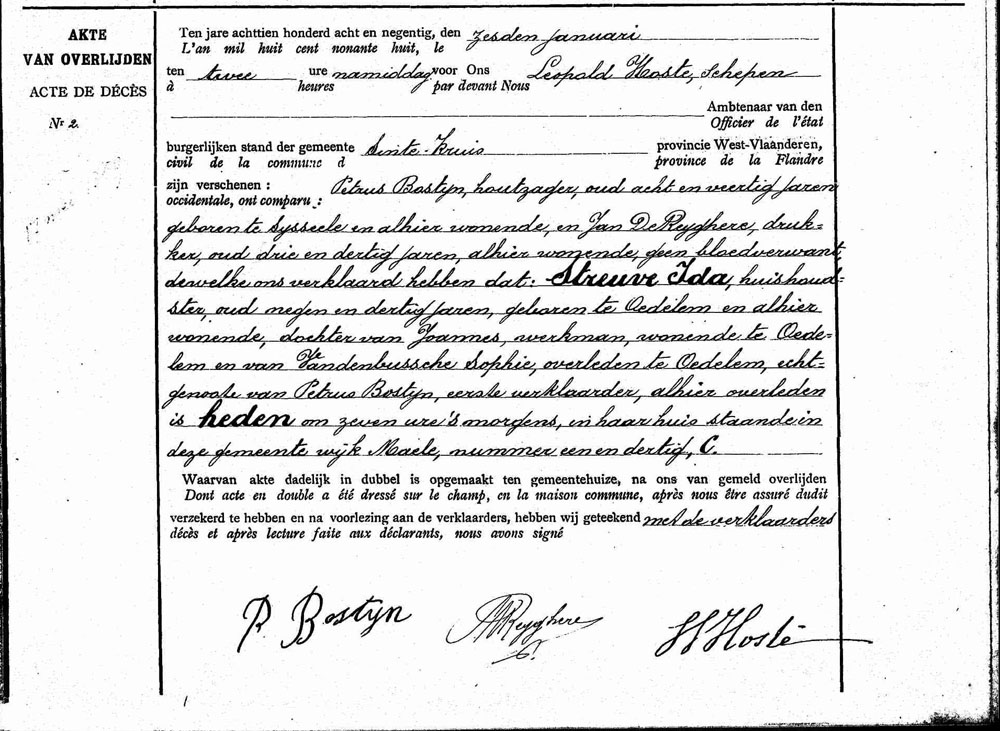 AKTE
VAN OVERLIJDEN
ACTE DE DÉCÈS
Nr 2.
Ten jare achttien honderd acht en negentig, den zesden januari
L'an mil huit cent nonante huit, le
ten twee ure namiddag voor Ons Leopold Hoste, Schepen
à heures par devant Nous
Ambtenaar van den
Officier de l'état
burgerlijken stand der gemeente Sinte-Kruis provincie West-Vlaanderen,
civil de la commune d province de la Flandre
zijn verschenen : Petrus Bostyn, houtzager, oud acht en veertig jaren
occidentale, ont comparu :
geboren te Sysseele en alhier wonende, en Jan De Reyghere, druk=
ker, oud drie en dertig jaren, alhier wonende, geen bloedverwant,
dewelke ons verklaard hebben dat: Streuve Ida, huishoud=
ster, oud negen en dertig jaren, geboren te Oedelem en alhier
wonende, dochter van Joannes, werkman, wonende te Oede=
lem en van Vandenbussche Sophie, overleden te Oedelem, echt=
genoote van Petrus Bostyn, eerste verklaarder, alhier overleden
is heden om zeven ure 's morgens, in haar huis staande in
deze gemeente wijk Maele, nummer een en dertig, C.
Waarvan akte dadelijk in dubbel is opgemaakt ten gemeentehuize, na ons van gemeld overlijden
Dont acte en double a été dressé sur le champ, en la maison commune, après nous être assuré dudit
verzekerd te hebben en na voorlezing aan de verklaarders, hebben wij geteekend met de verklaarders
décès et après lecture faite aux déclarants, nous avons signé
P. Bostyn
Reyghere
Hoste